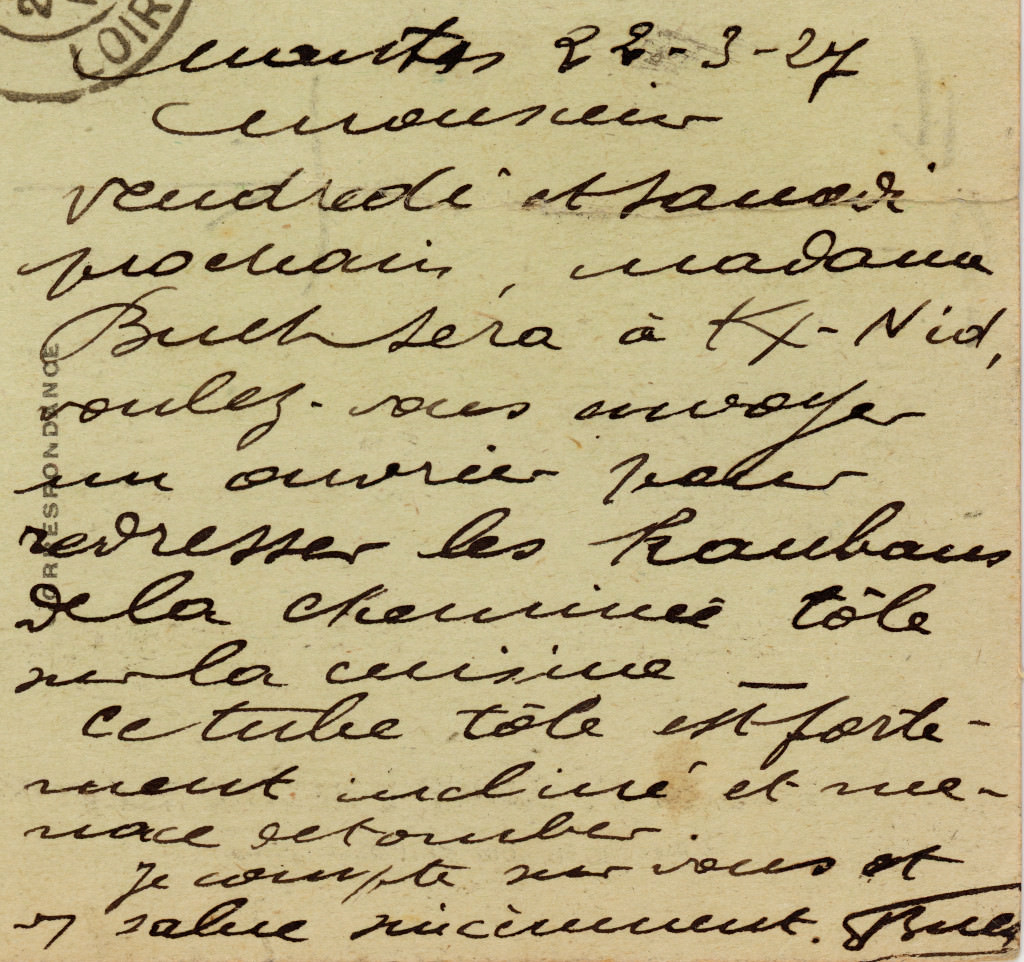 LOIR
Nantes 22-3-27
Monsieur
vendredi et samedi
prochain, madame
Buch sera à Kx-Nid,
voulez-vous envoyer
un ouvrier pour
redresser les haubans
de la cheminée tôle
sur la cuisine _
ce tube tôle est forte-
ment incliné et me-
nace de tomber.
Je compte sur vous et
vs salue sincèrement.
CORRESPONDANCE